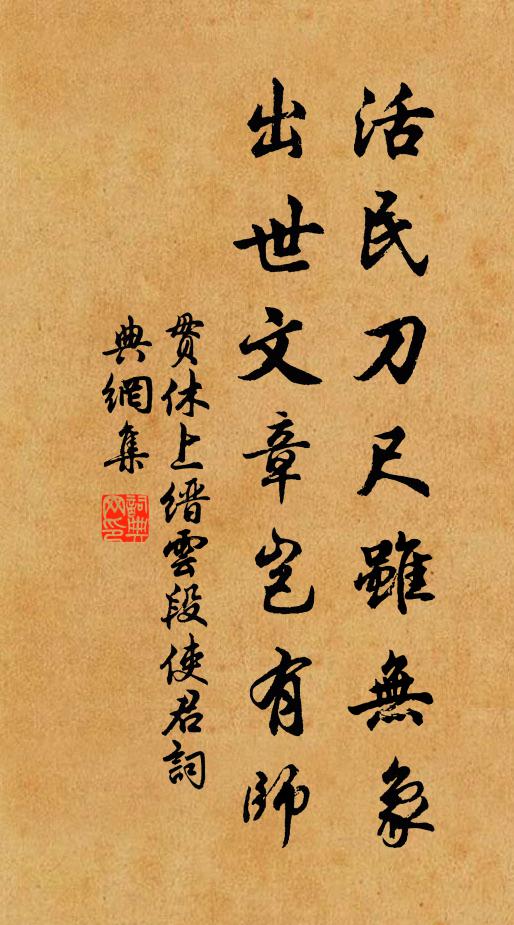 活民刀尺雖無象
出世文章豈有師
貫休上縉雲段使君詞
典網集
詞典
网印